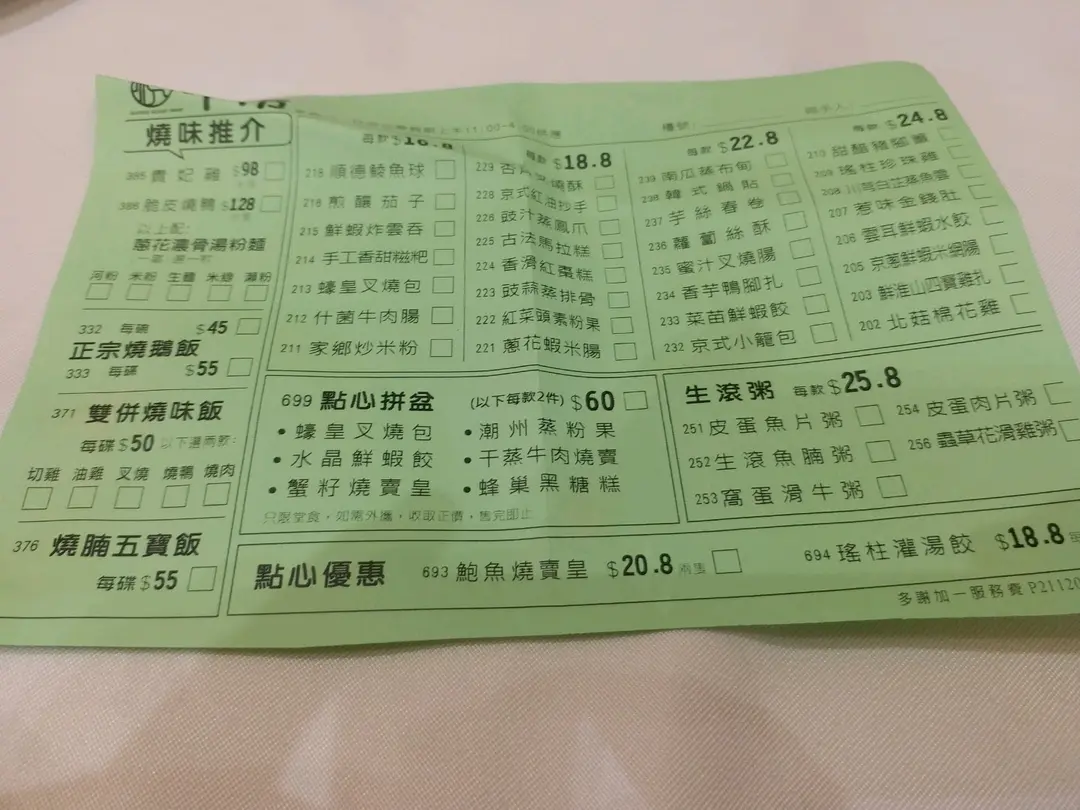 燒味推介
385 貴妃雞 $98
386 脆皮燒鴨 $128
以上配:
蔥花濃骨湯粉麵
河粉 米粉 生麵 米線 瀨粉
332 每碗 $45
正宗燒鵝飯
333 每碟 $55
371 雙併燒味飯
每碟$50 以下選兩款:
切雞 油雞 叉燒 燒鴨 燒肉
376 燒腩五寶飯
每碟$55
218 順德鯪魚球
216 煎釀茄子
215 鮮蝦炸雲吞
214 手工香甜糍粑
213 蠔皇叉燒包
212 什菌牛肉腸
211 家鄉炒米粉
每款 $18.8
229
228 京式紅油抄手
226 豉汁蒸鳳爪
225 古法馬拉糕
224 香滑紅棗糕
223 豉蒜蒸排骨
222 紅菜頭素粉果
221 蔥花蝦米腸
每款 $22.8
239 南瓜蓉布甸
238 韓式鍋貼
237 芋絲春卷
236 蘿蔔絲酥
235 蜜汁叉燒腸
234 香芋鴨腳扎
233 菜苗鮮蝦餃
232 京式小籠包
每款 $24.8
210 甜醋豬腳薑
209 瑤柱珍珠雞
208
207 惹味金錢肚
206 雲耳鮮蝦水餃
205 京蔥鮮蝦米網腸
203 鮮淮山四寶雞扎
202 北菇棉花雞
699 點心拼盆 (以下每款2件) $60
• 蠔皇叉燒包 • 潮州蒸粉果
• 水晶鮮蝦餃 • 干蒸牛肉燒賣
• 蟹籽燒賣皇 • 蜂巢黑糖糕
只限堂食，如需外攜，收取正價，售完即止
生滾粥 每款 $25.8
251 皮蛋魚片粥 254 皮蛋肉片粥
252 生滾魚腩粥 256 蟲草花滑雞粥
253 窩蛋滑牛粥
點心優惠 693 鮑魚燒賣皇 $20.8 兩隻 694 瑤柱灌湯餃 $18.8
多謝加一服務費 P21120